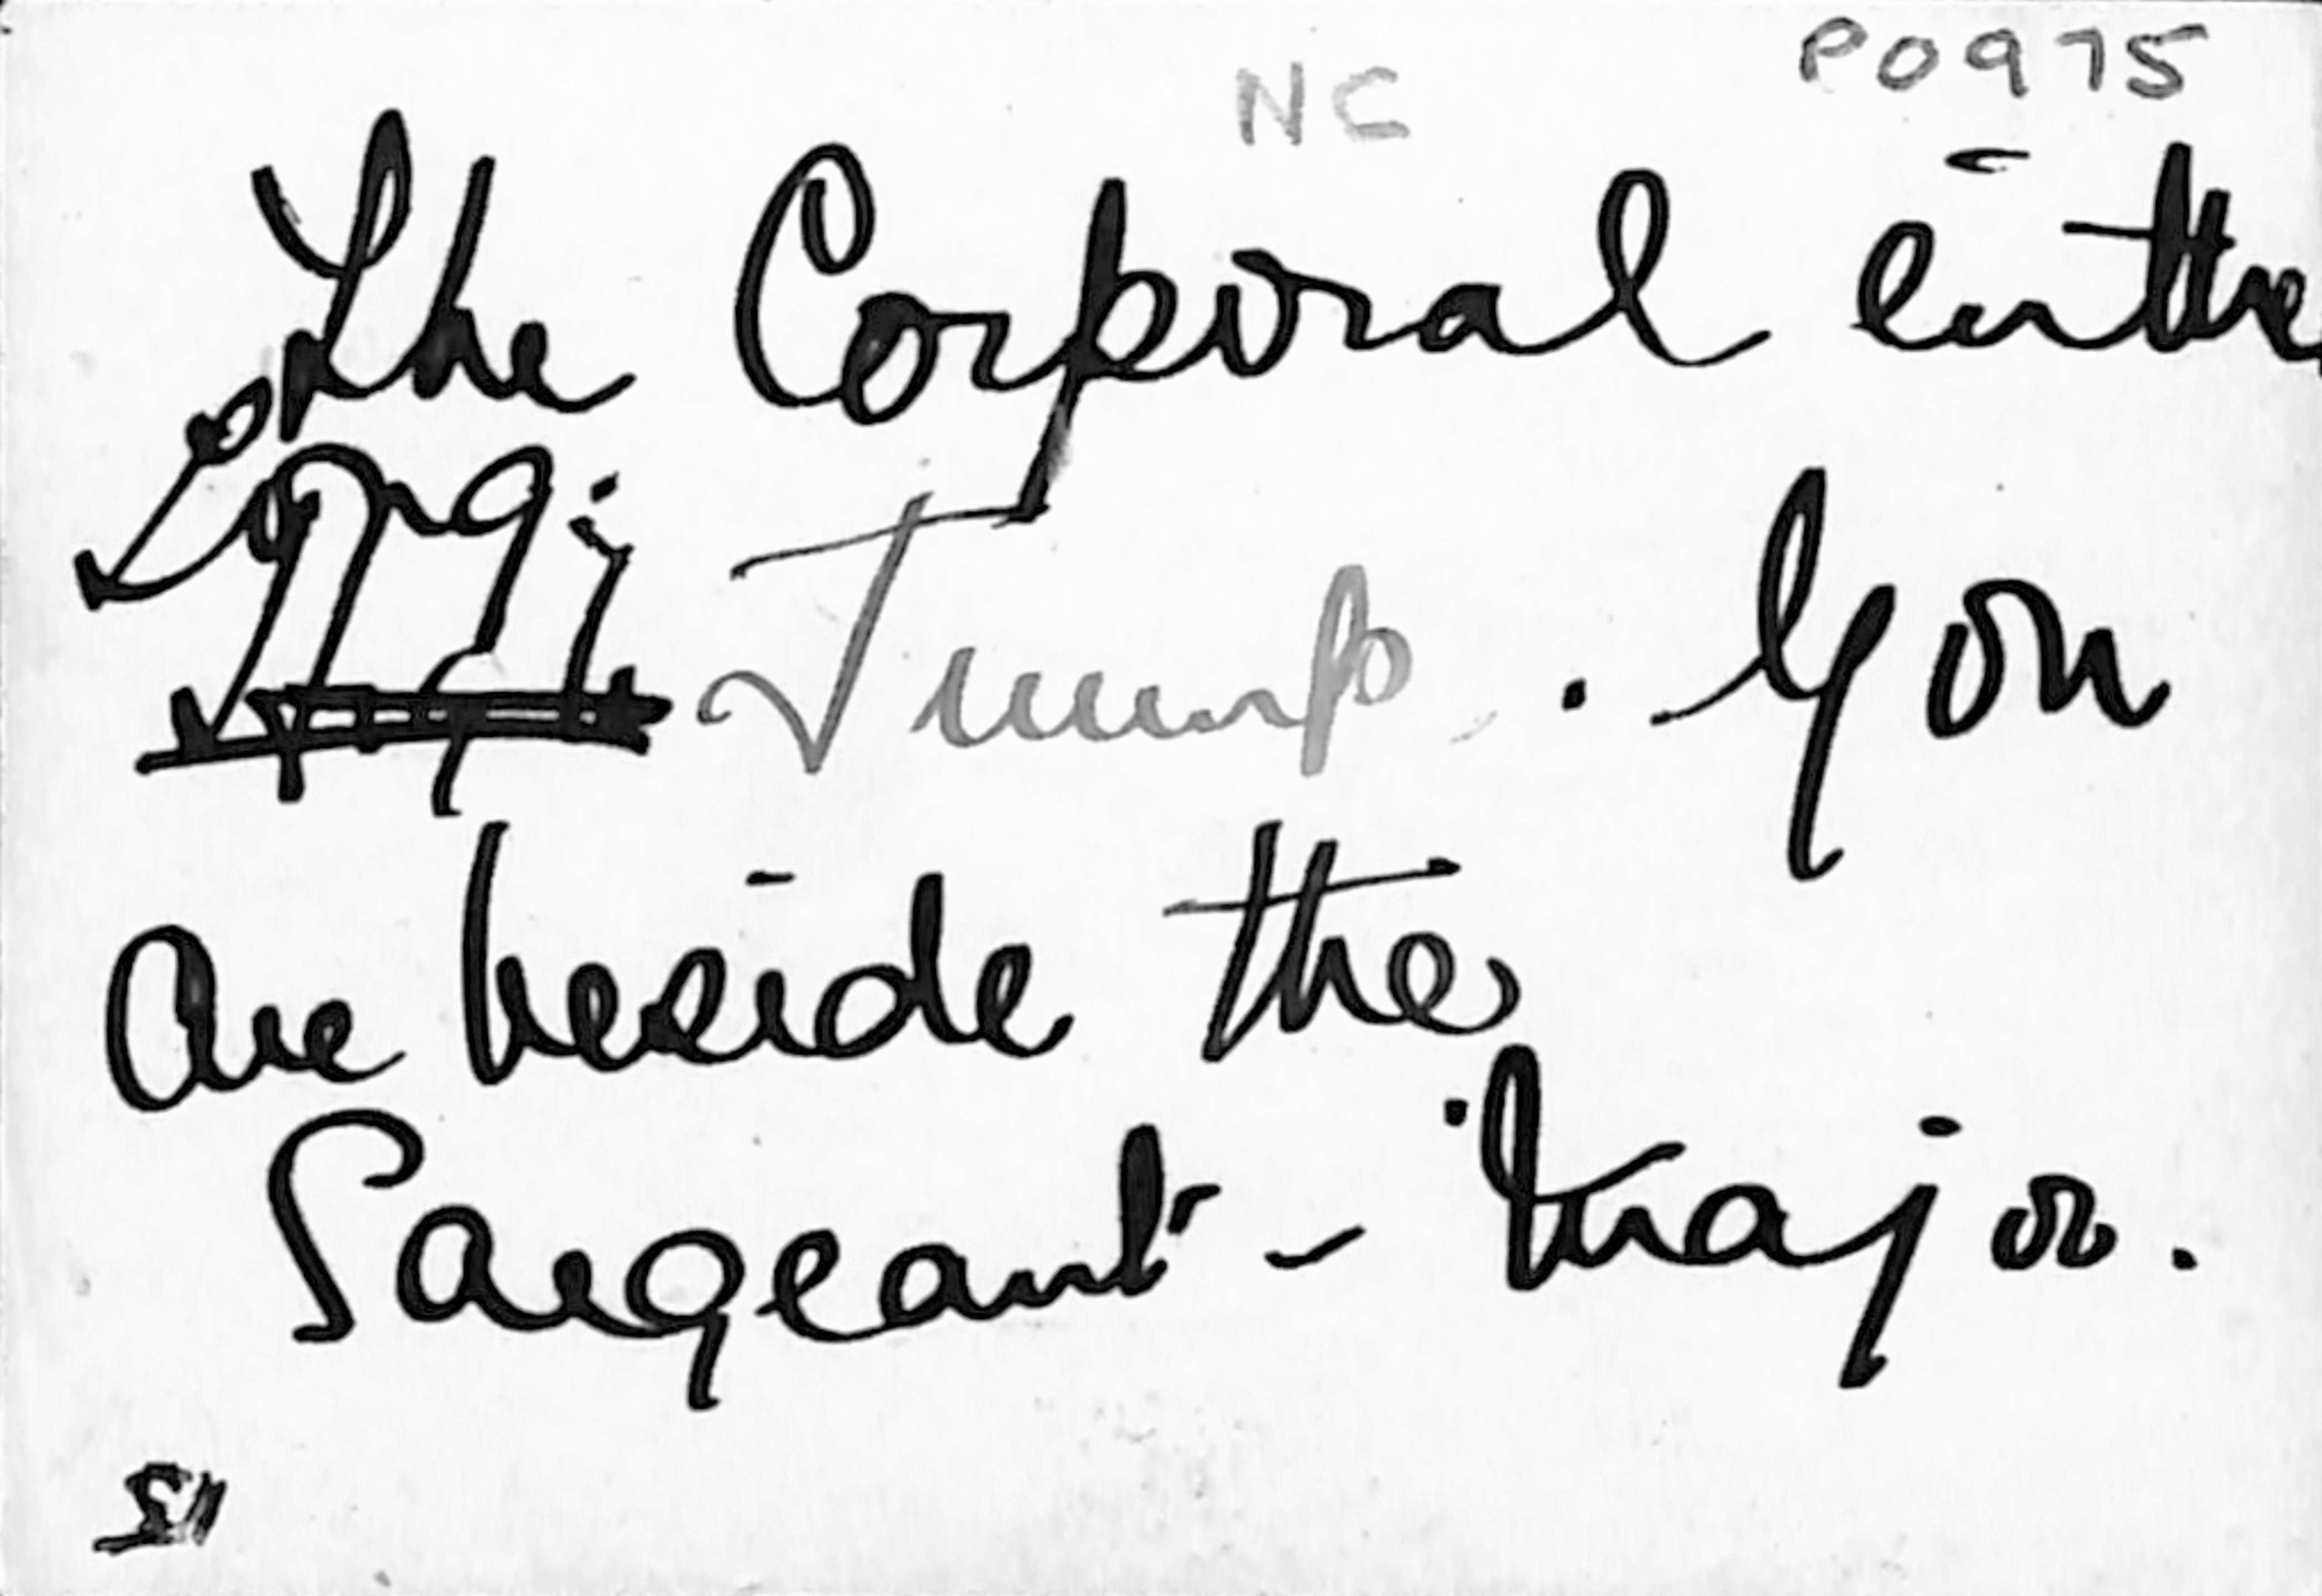 NC P0975
The Corporal in the
Long Jump. You
are beside the
Sargeant - Major.